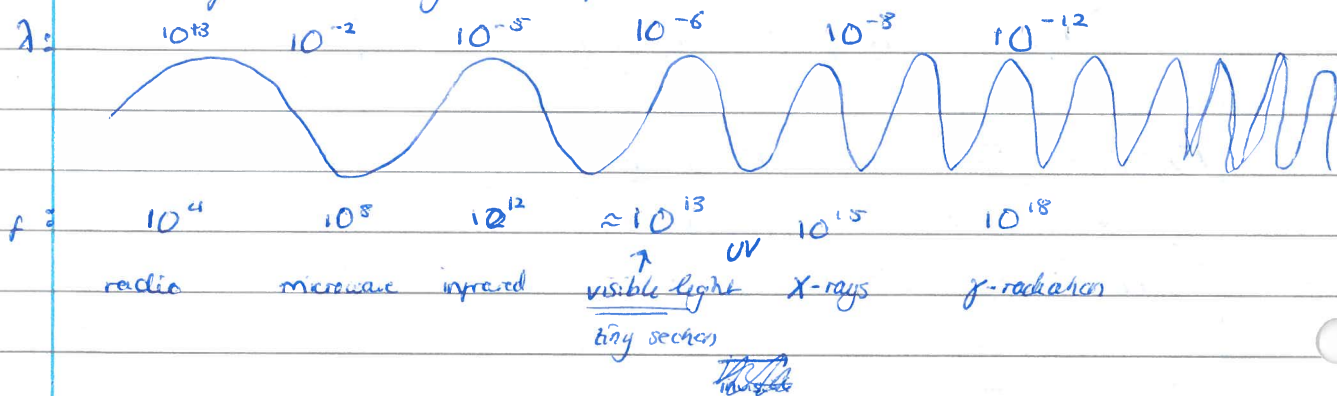 λ: 10⁺³ 10⁻² 10⁻⁵ 10⁻⁶ 10⁻⁸ 10⁻¹²
f: 10⁴ 10⁸ 10¹² ≈10¹³ 10¹⁵ 10¹⁸
↑ UV
radio microwave infrared visible light X-rays γ-radiation
tiny section